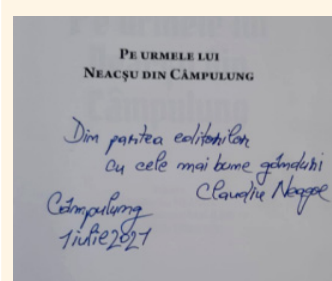 PE URMELE LUI
NEACȘU DIN CÂMPULUNG
Din partea editorilor
cu cele mai bune gânduri
Claudiu Neagoe
Câmpulung
1 iulie 2021